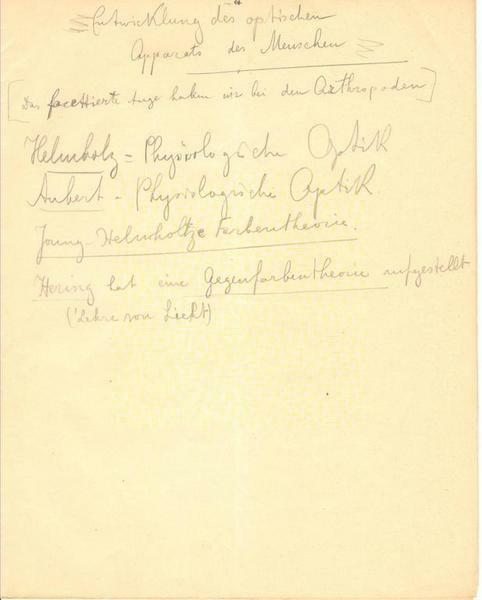 Entwicklung des optischen
Apparats des Menschen
[Das facettierte Auge haben wir bei den Arthropoden]
Helmholz = Physiologische Optik
Aubert - Physiologische Optik.
Joung-Helmholtze Farbentheorie.
Hering hat eine Gegenfarbentheorie aufgestellt
('Lehre von Licht)